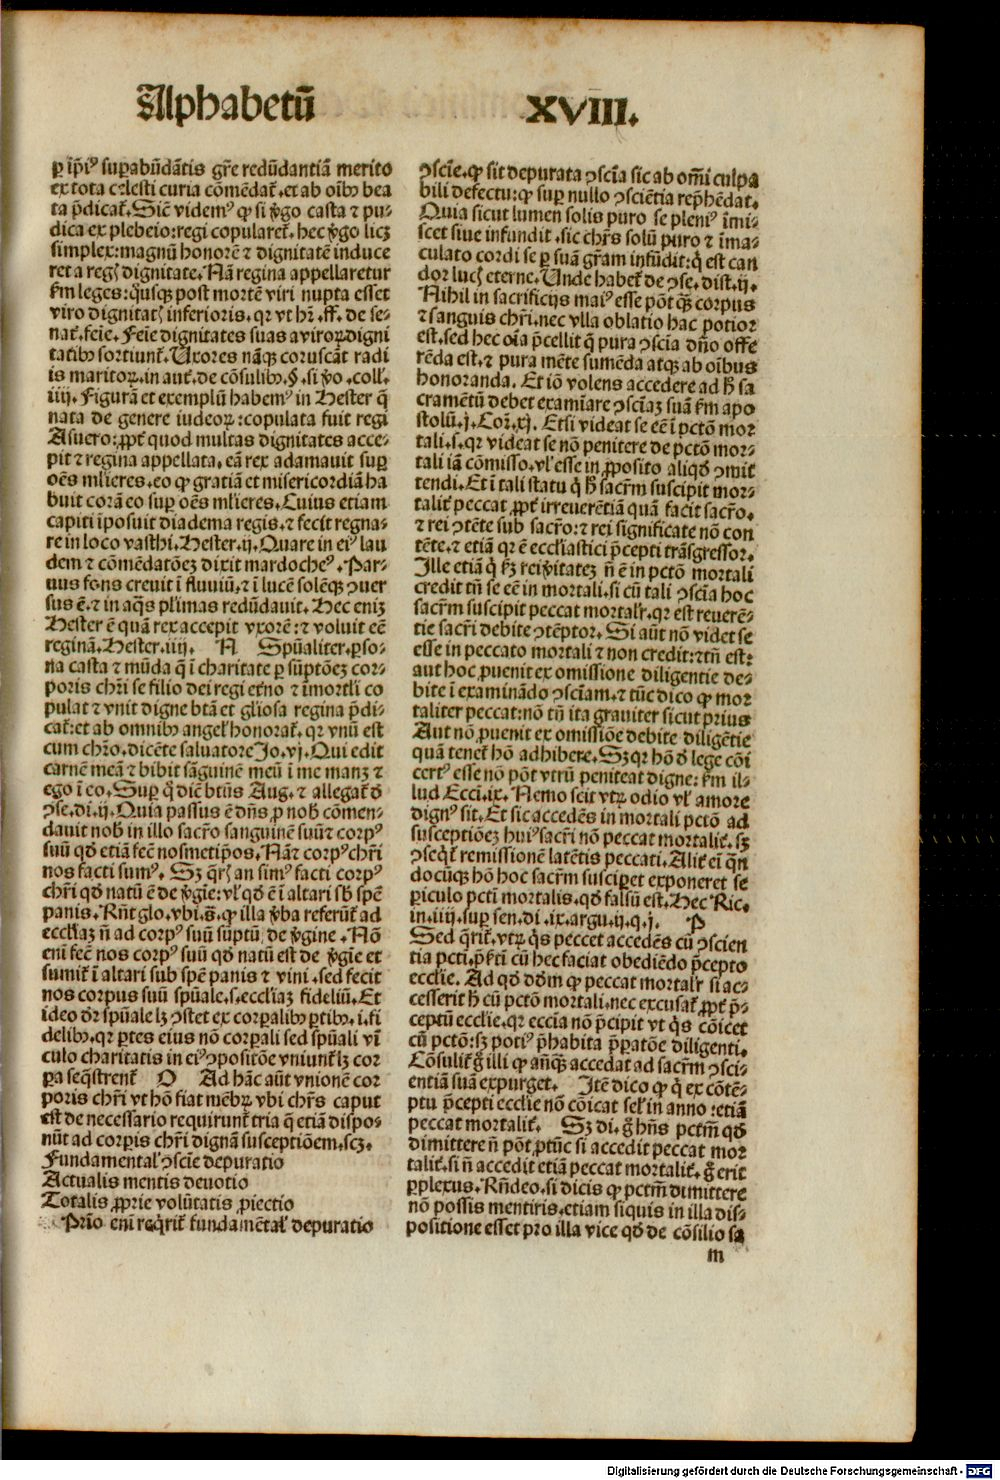 Alphabetũ XVIII.
ꝑ ip̄iꝰ suꝑabũdãtis gr̃e redũdantiã merito
ex tota celesti curia cõmẽdat᷑. et ab oĩbꝰ bea
ta p̃dicat᷑. Sic̃ videmꝰ ꝙ si ṽgo casta ⁊ pu⸗
dica ex plebeio: regi copularet᷑. hec ṽgo licꝫ
simplex: magnũ honorẽ ⁊ dignitatẽ induce
ret a regꝭ dignitate. Nã regina appellaretur
ẜm leges: q̃usqꝫ post mortẽ viri nupta esset
viro dignitatꝭ inferioris. qr vt hr̃. ff. de se⸗
nat᷑. feie. Feie dignitates suas a viroꝝ digni
tatibꝰ sortiunt᷑. Uxores nãqꝫ coruscãt radi
is maritoꝝ. in aut᷑. de cõsulibꝰ. §. si ṽo. coll᷑.
iiij. Figurã et exemplũ habemꝰ in Hester q̃
nata de genere iudeoꝝ: copulata fuit regi
Asuero: ꝓpt᷑ quod multas dignitates acce⸗
pit ⁊ regina appellata. eã rex adamauit suꝑ
oẽs ml̃ieres. eo ꝙ gratiã et misericordiã ha
buit corã eo suꝑ oẽs ml̃ieres. Cuius etiam
capiti ĩposuit diadema regis. ⁊ fecit regna⸗
re in loco vasthi. Hester. ij. Quare in eiꝰ lau
dem ⁊ cõmẽdatõeꝫ dixit mardocheꝰ. Par⸗
uus fons creuit ĩ fluuiũ. ⁊ ĩ lucẽ solẽqꝫ ꝯuer
sus ẽ. ⁊ in aq̃s pl̃imas redũdauit. Hec eniꝫ
Hester ẽ quã rex accepit vxorẽ: ⁊ voluit eẽ
reginã. Hester. iiij. N Spũaliter. ꝑso⸗
na casta ⁊ mũda q̃ ĩ charitate ꝑ sũptõeꝫ cor⸗
poris chr̃i se filio dei regi et̃no ⁊ ĩmortl̃i co
pulat ⁊ vnit digne bt̃a et gl̃iosa regina p̃di⸗
cat᷑: et ab omnibꝰ angel᷑ honorat᷑. qr vnũ est
cum chr̃o. dicẽte saluatore Jo. vj. Qui edit
carnẽ meã ⁊ bibit sãguinẽ meũ ĩ me manꝫ ⁊
ego ĩ eo. Suꝑ q̃ dic̃ bt̃us Aug. ⁊ allegat᷑ ð
ꝯse. di. ij. Quia passus ẽ dñs ꝓ nob̃ cõmen⸗
dauit nob̃ in illo sacr̃o sanguinẽ suũ ⁊ corpꝰ
suũ qð etiã fec̃ nosmetip̃os. Nã ⁊ corpꝰ chr̃i
nos facti sumꝰ. Sꝫ q̃rꝭ an simꝰ facti corpꝰ
chr̃i qð natũ ẽ de ṽgie: vl᷑ qð ẽ ĩ altari sb̃ spẽ
panis. Rñt glo. vbi. s̃. ꝙ illa ṽba referũt᷑ ad
eccl̃iaꝫ ñ ad corpꝰ suũ sũptũ de ṽgine. Nõ
enĩ fec̃ nos corpꝰ suũ qð natũ est de ṽgie et
sumit᷑ ĩ altari sub spẽ panis ⁊ vini. sed fecit
nos corpus suũ spũale. s. eccl̃iaꝫ fideliũ. Et
ideo dr̃ spũale lꝫ ꝯstet ex corꝑalibꝰ ꝑtibꝰ. i. fi
delibꝰ. qr ꝑtes eius nõ corꝑali sed spũali vĩ
culo charitatis in eiꝰ ꝯpositõe vniunt᷑ lꝫ cor
ꝑa seq̃strent᷑ O Ad hãc aũt vnionẽ cor
poris chr̃i vt hõ fiat mẽbꝝ vbi chr̃s caput
est de necessario requirunt᷑ tria q̃ etiã dispo⸗
nũt ad corꝑis chr̃i dignã susceptiõem. scꝫ.
Fundamental᷑ ꝯscie depuratio
Actualis mentis deuotio
Totalis ꝓprie volũtatis ꝓiectio
Prĩo enĩ req̃rit᷑ fundamẽtal᷑ depuratio
ꝯscie. ꝙ sit depurata ꝯscia sic ab omi culpa
bili defectu: ꝙ suꝑ nullo ꝯsciẽtia rep̃hẽdat.
Quia sicut lumen solis puro se pleniꝰ ĩmi⸗
scet siue infundit. sic chr̃s solũ puro ⁊ ĩma⸗
culato cordi se ꝑ suã gr̃am infũdit: q̃ est can
dor lucꝭ eterne. Unde habet᷑ de ꝯse. dist. ij.
Nihil in sacrificijs maiꝰ esse põt qꝫ corpus
⁊ sanguis chr̃i. nec vlla oblatio hac potior
est. sed hec oĩa p̃cellit q̃ pura ꝯscia dño offe
rẽda est. ⁊ pura mẽte sumẽda atqꝫ ab oĩbus
honoranda. Et iõ volens accedere ad h̃ sa
cramẽtũ debet examĩare ꝯsciaꝫ suã ẜm apo
stolũ. j. Cor̃. xj. Etsi videat se eẽ ĩ pctõ mor
tali. s. qr videat se nõ penitere de pctõ mor⸗
tali iã cõmisso. vl᷑ esse in ꝓposito aliqð ꝯmit
tendi. Et ĩ tali statu q̃ h̃ sacr̃m suscipit mor⸗
talit᷑ peccat ꝓpt᷑ irreuerẽtiã quã facit sacr̃o.
⁊ rei ꝯtẽte sub sacr̃o: ⁊ rei significate nõ con
tẽte. ⁊ etiã qr ẽ eccl̃iastici p̃cepti trãsgressor.
Ille etiã q̃ ẜꝫ rei ṽitateꝫ ñ ẽ in pctõ mortali
credit tñ se eẽ in mortali. si cũ tali ꝯscia hoc
sacr̃m suscipit peccat mortalr̃. qr est reuerẽ⸗
tie sacr̃i debite ꝯtẽptor. Si aũt nõ videt se
esse in peccato mortali ⁊ non credit: ⁊ tñ est:
aut hoc ꝓuenit ex omissione diligentie de⸗
bite ĩ examinãdo ꝯsciam. ⁊ tũc dico ꝙ mor
taliter peccat: nõ tñ ita grauiter sicut prius
Aut nõ ꝓuenit ex omissiõe debite diligẽtie
quã tenet᷑ hõ adhibere. Sꝫ qr hõ ð lege cõi
certꝰ esse nõ põt vtrũ peniteat digne: ẜm il⸗
lud Ecci. ix. Nemo scit vtꝝ odio vl᷑ amore
dignꝰ sit. Et sic accedẽs in mortali pctõ ad
susceptiõeꝫ huiꝰ sacr̃i nõ peccat mortalit᷑. sꝫ
ꝯseq̃t᷑ remissionẽ latẽtis peccati. Alit᷑ ei q̃n
docũqꝫ hõ hoc sacr̃m susciꝑet exponeret se
ꝑiculo pct̃i mortalis. qð falsũ est. Hec Ric.
in. iiij. suꝑ sen. di. ix. argu. ij. q. j. P
Sed q̃rit᷑. vtꝝ q̃s peccet accedẽs cũ ꝯscien
tia pct̃i. p̃ẜti cũ hec faciat obediẽdo p̃cepto
ecclie. Ad qð dðm ꝙ peccat mortalr̃ si ac⸗
cesserit h̃ cũ pctõ mortali. nec excusat᷑ ꝓpt᷑ p̃⸗
ceptũ ecclie. qr eccia nõ p̃cipit vt q̃s cõicet
cũ pctõ: sꝫ potiꝰ p̃habita p̃ꝑatõe diligenti.
Cõsulit᷑ g̃ illi ꝙ añqꝫ accedat ad sacr̃m ꝯsci⸗
entiã suã expurget. Itẽ dico ꝙ q̃ ex cõtẽ⸗
ptu p̃cepti ecclie nõ cõicat sel᷑ in anno: etiã
peccat mortalit᷑. Sꝫ di. g̃ hñs pctm̃ qð
dimittere ñ põt ꝓtũc si accedit peccat mor
talit᷑. si ñ accedit etiã peccat mortalit᷑. g̃ erit
ꝑplexus. Rñdeo. si dicis ꝙ pctm̃ dimittere
nõ possis mentiris. etiam siquis in illa dis⸗
positione esset pro illa vice qð de cõsilio sa
m
Digitalisierung gefördert durch die Deutsche Forschungsgemeinschaft - DFG